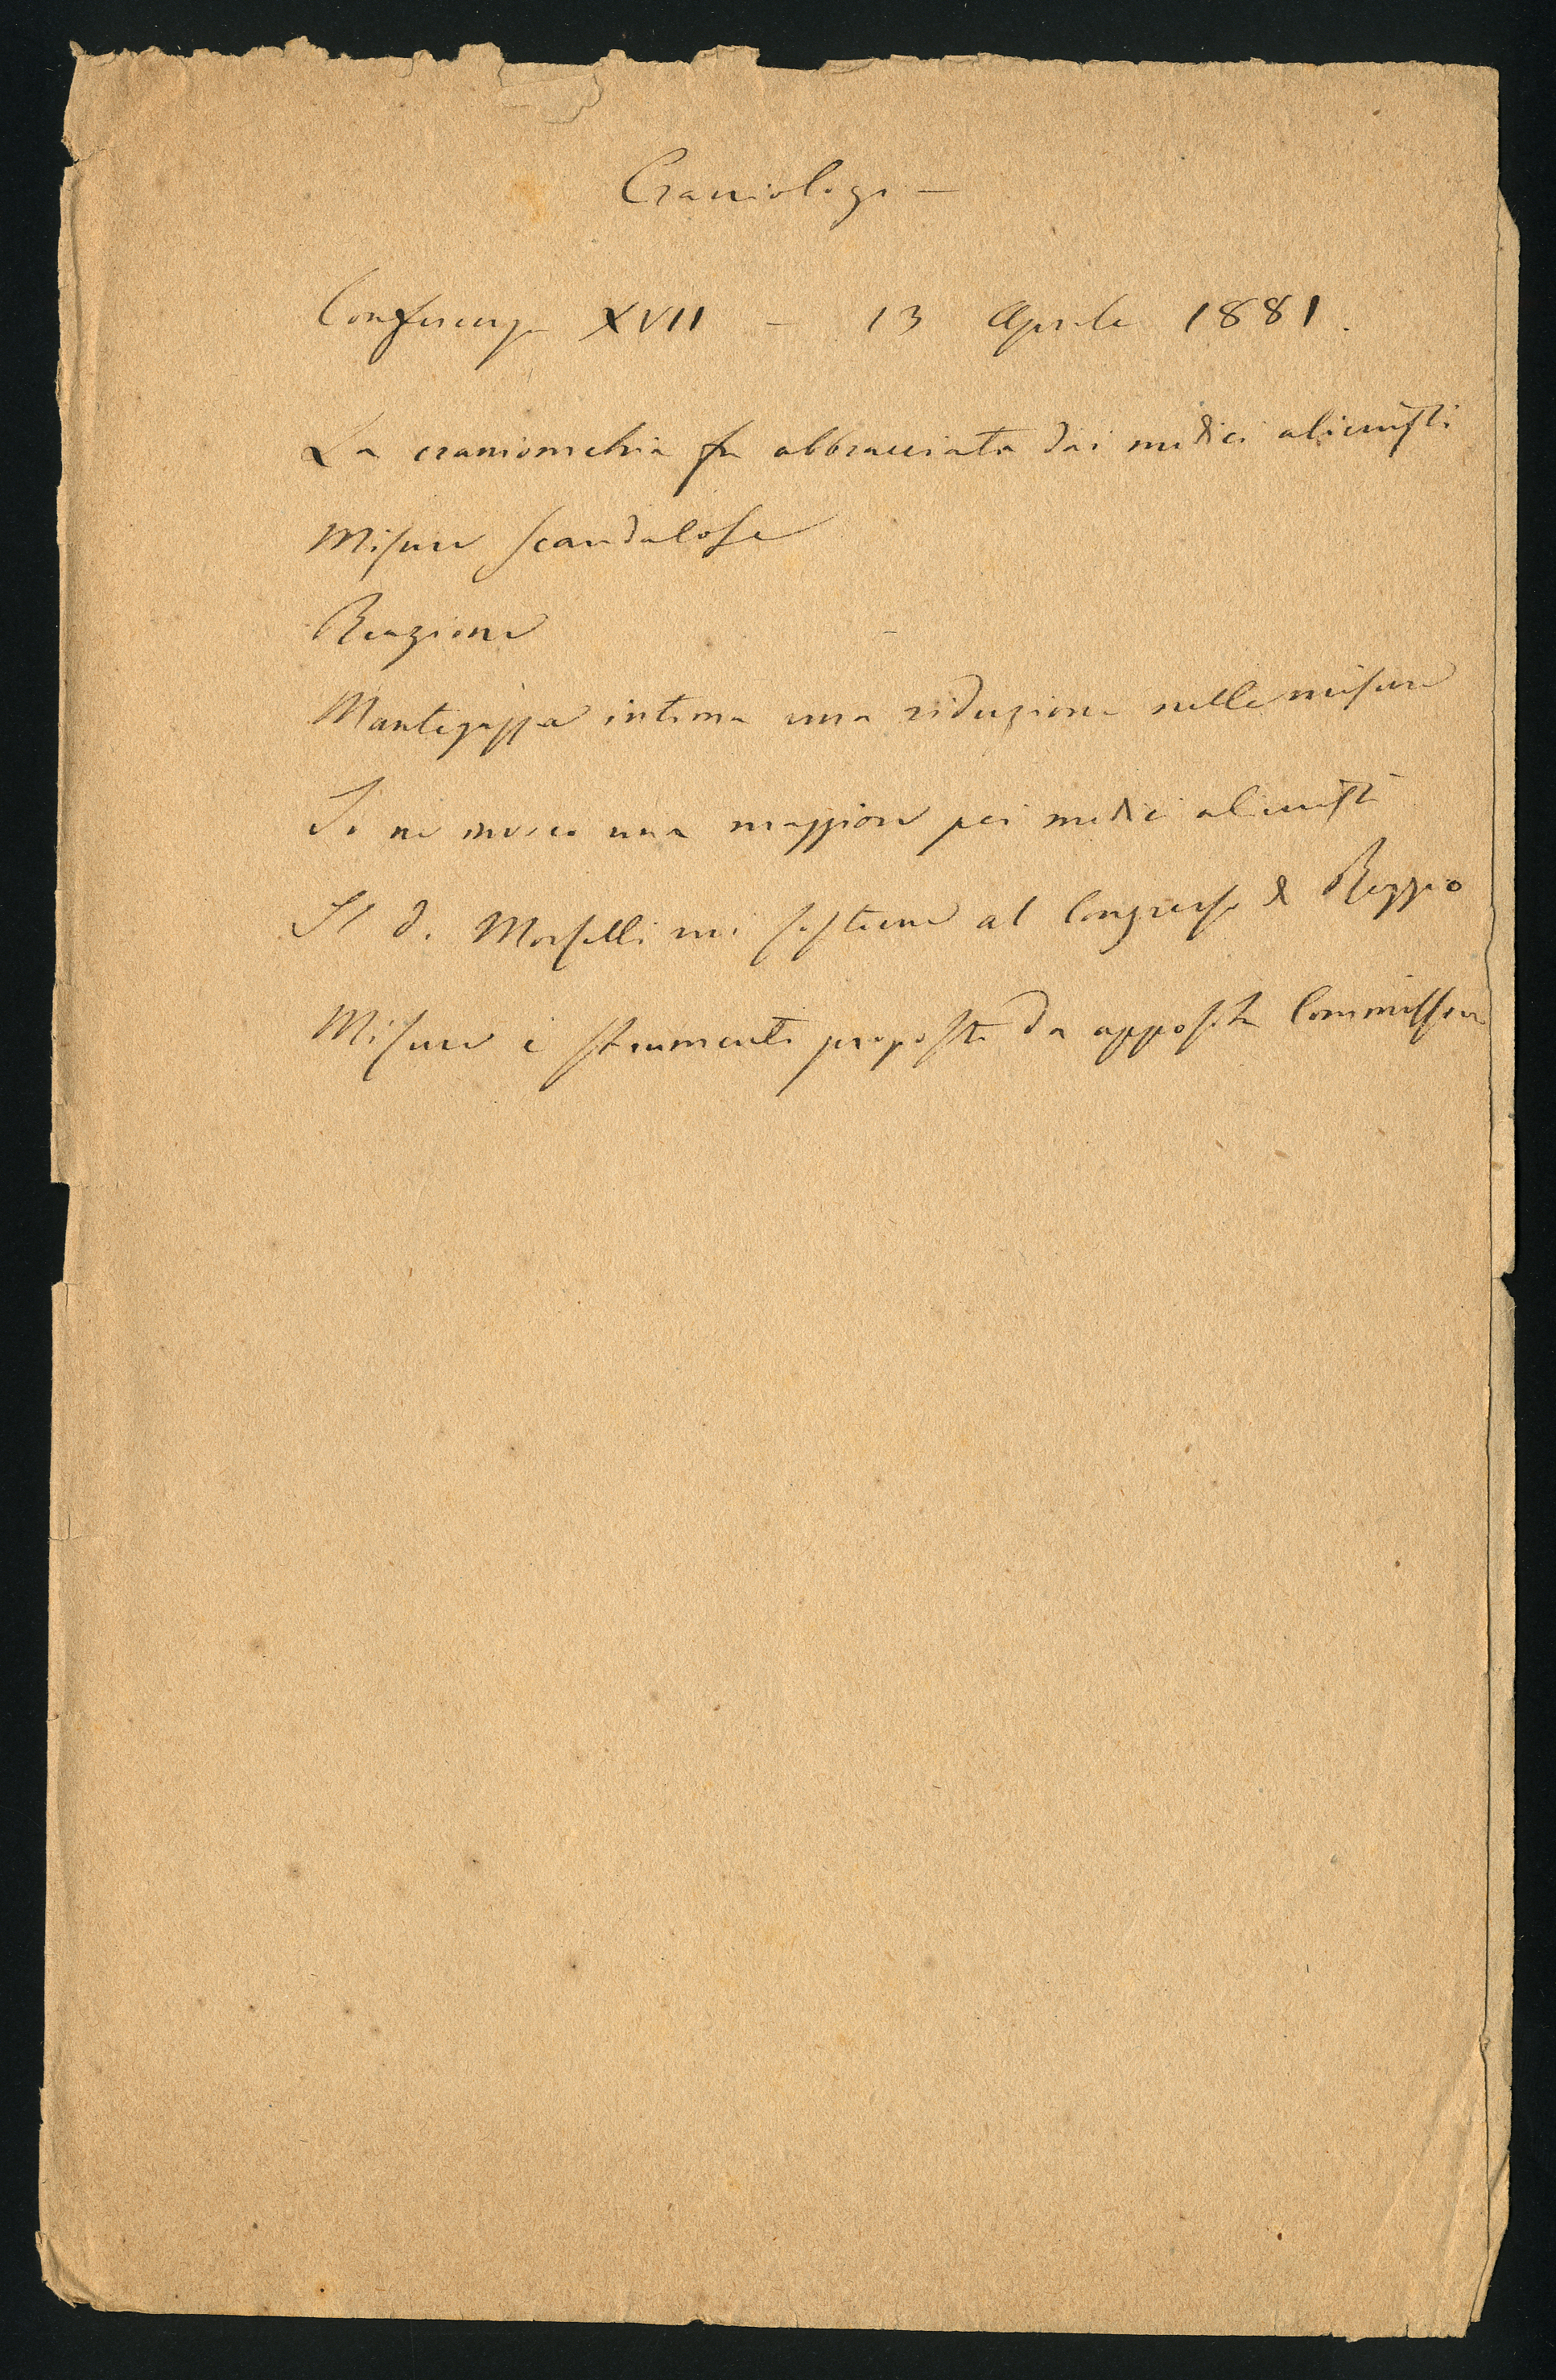 Craniologia —
Conferenza XVII – 13 Aprile 1881.
La craniometria fu abbracciata dai medici alienisti
Misure scandalose
Reazione
Mantegazza intima una riduzione nelle misure
Io ne invoco una maggiore pei medici alienisti
Il d. Morselli mi sostiene al Congresso di Reggio
Misure e strumenti proposti da apposita Commissione